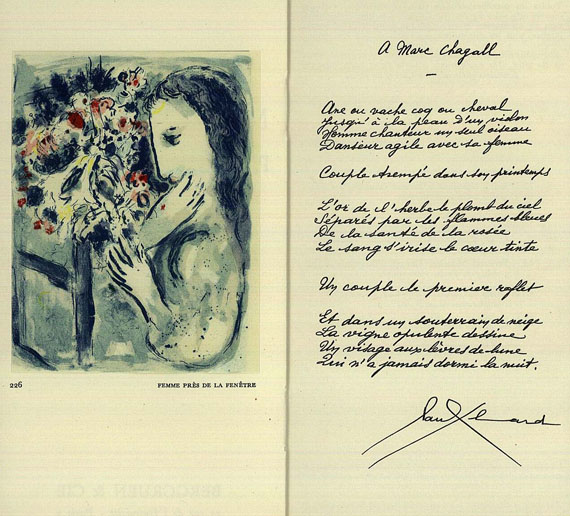 226
FEMME PRÈS DE LA FENÊTRE
A Marc Chagall
—
Ane ou vache coq ou cheval
Jusqu'à la peau d'un violon
Homme chanteur un seul oiseau
Danseur agile avec sa femme
Couple trempé dans son printemps
L'or de l'herbe le plomb du ciel
Séparés par les flammes bleues
De la santé de la rosée
Le sang s'irise le cœur tinte
Un couple le premier reflet
Et dans un souterrain de neige
La vigne opulente dessine
Un visage aux lèvres de lune
Qui n'a jamais dormi la nuit.
Paul Eluard